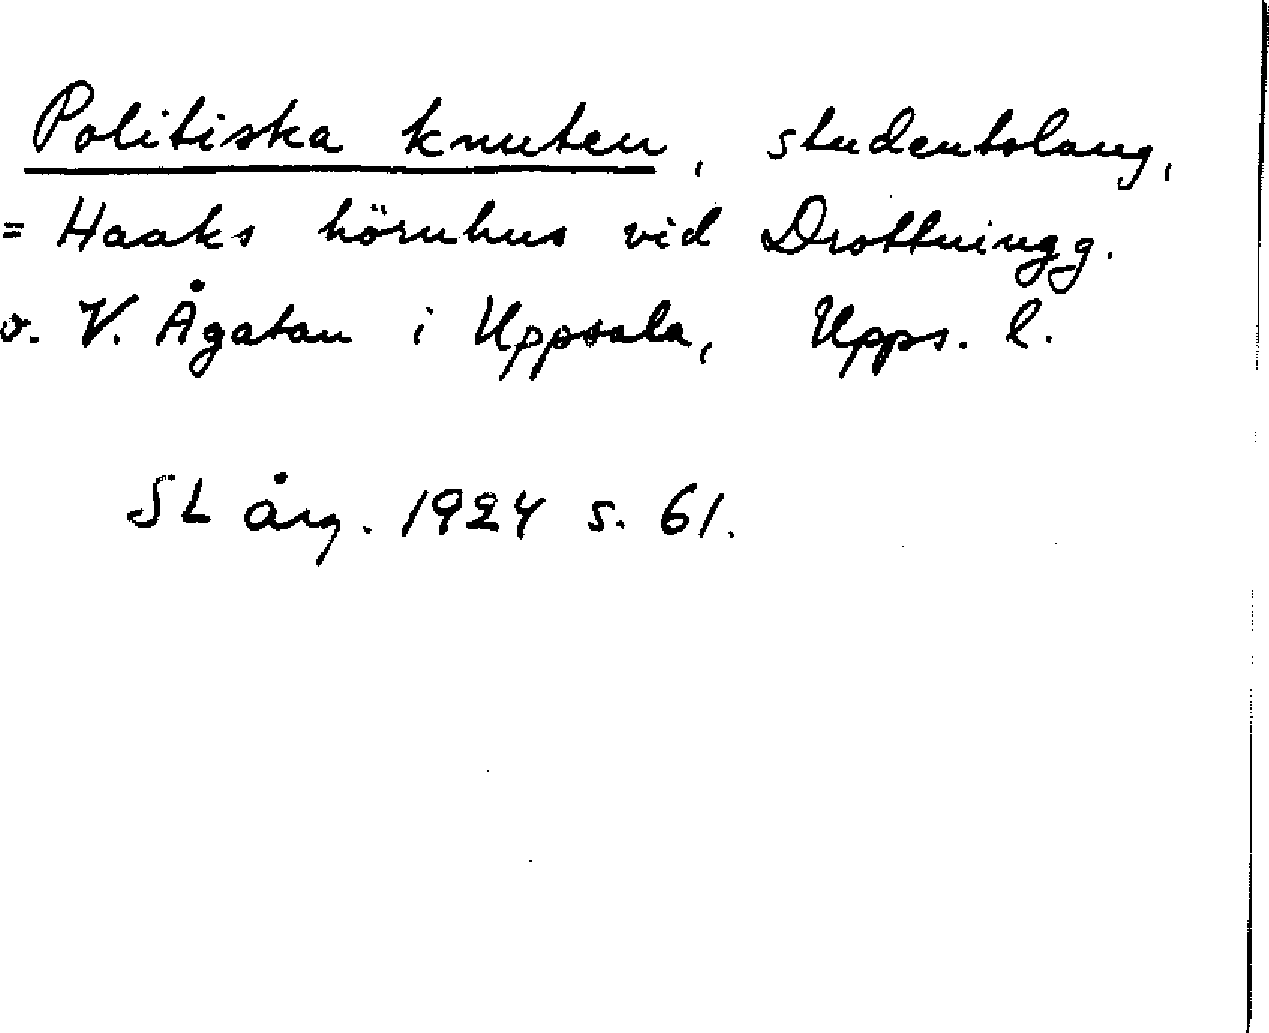 Politiska knuten, studentslang,
= Haaks hörnhus vid Drottningg.
o. V. Ågatan i Uppsala, Upps. l.
SL årg. 1924 s. 61.